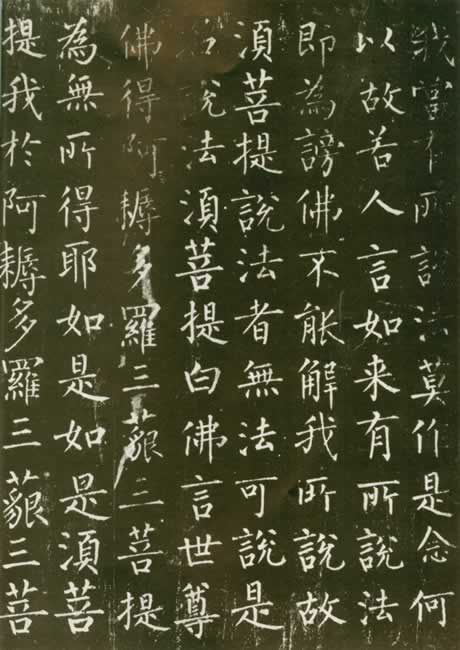 我當有所說法莫作是念何
以故若人言如来有所說法
即為謗佛不能解我所說故
須菩提說法者無法可說是
名說法須菩提白佛言世尊
佛得阿耨多羅三藐三菩提
為無所得耶如是如是須菩
提我於阿耨多羅三藐三菩